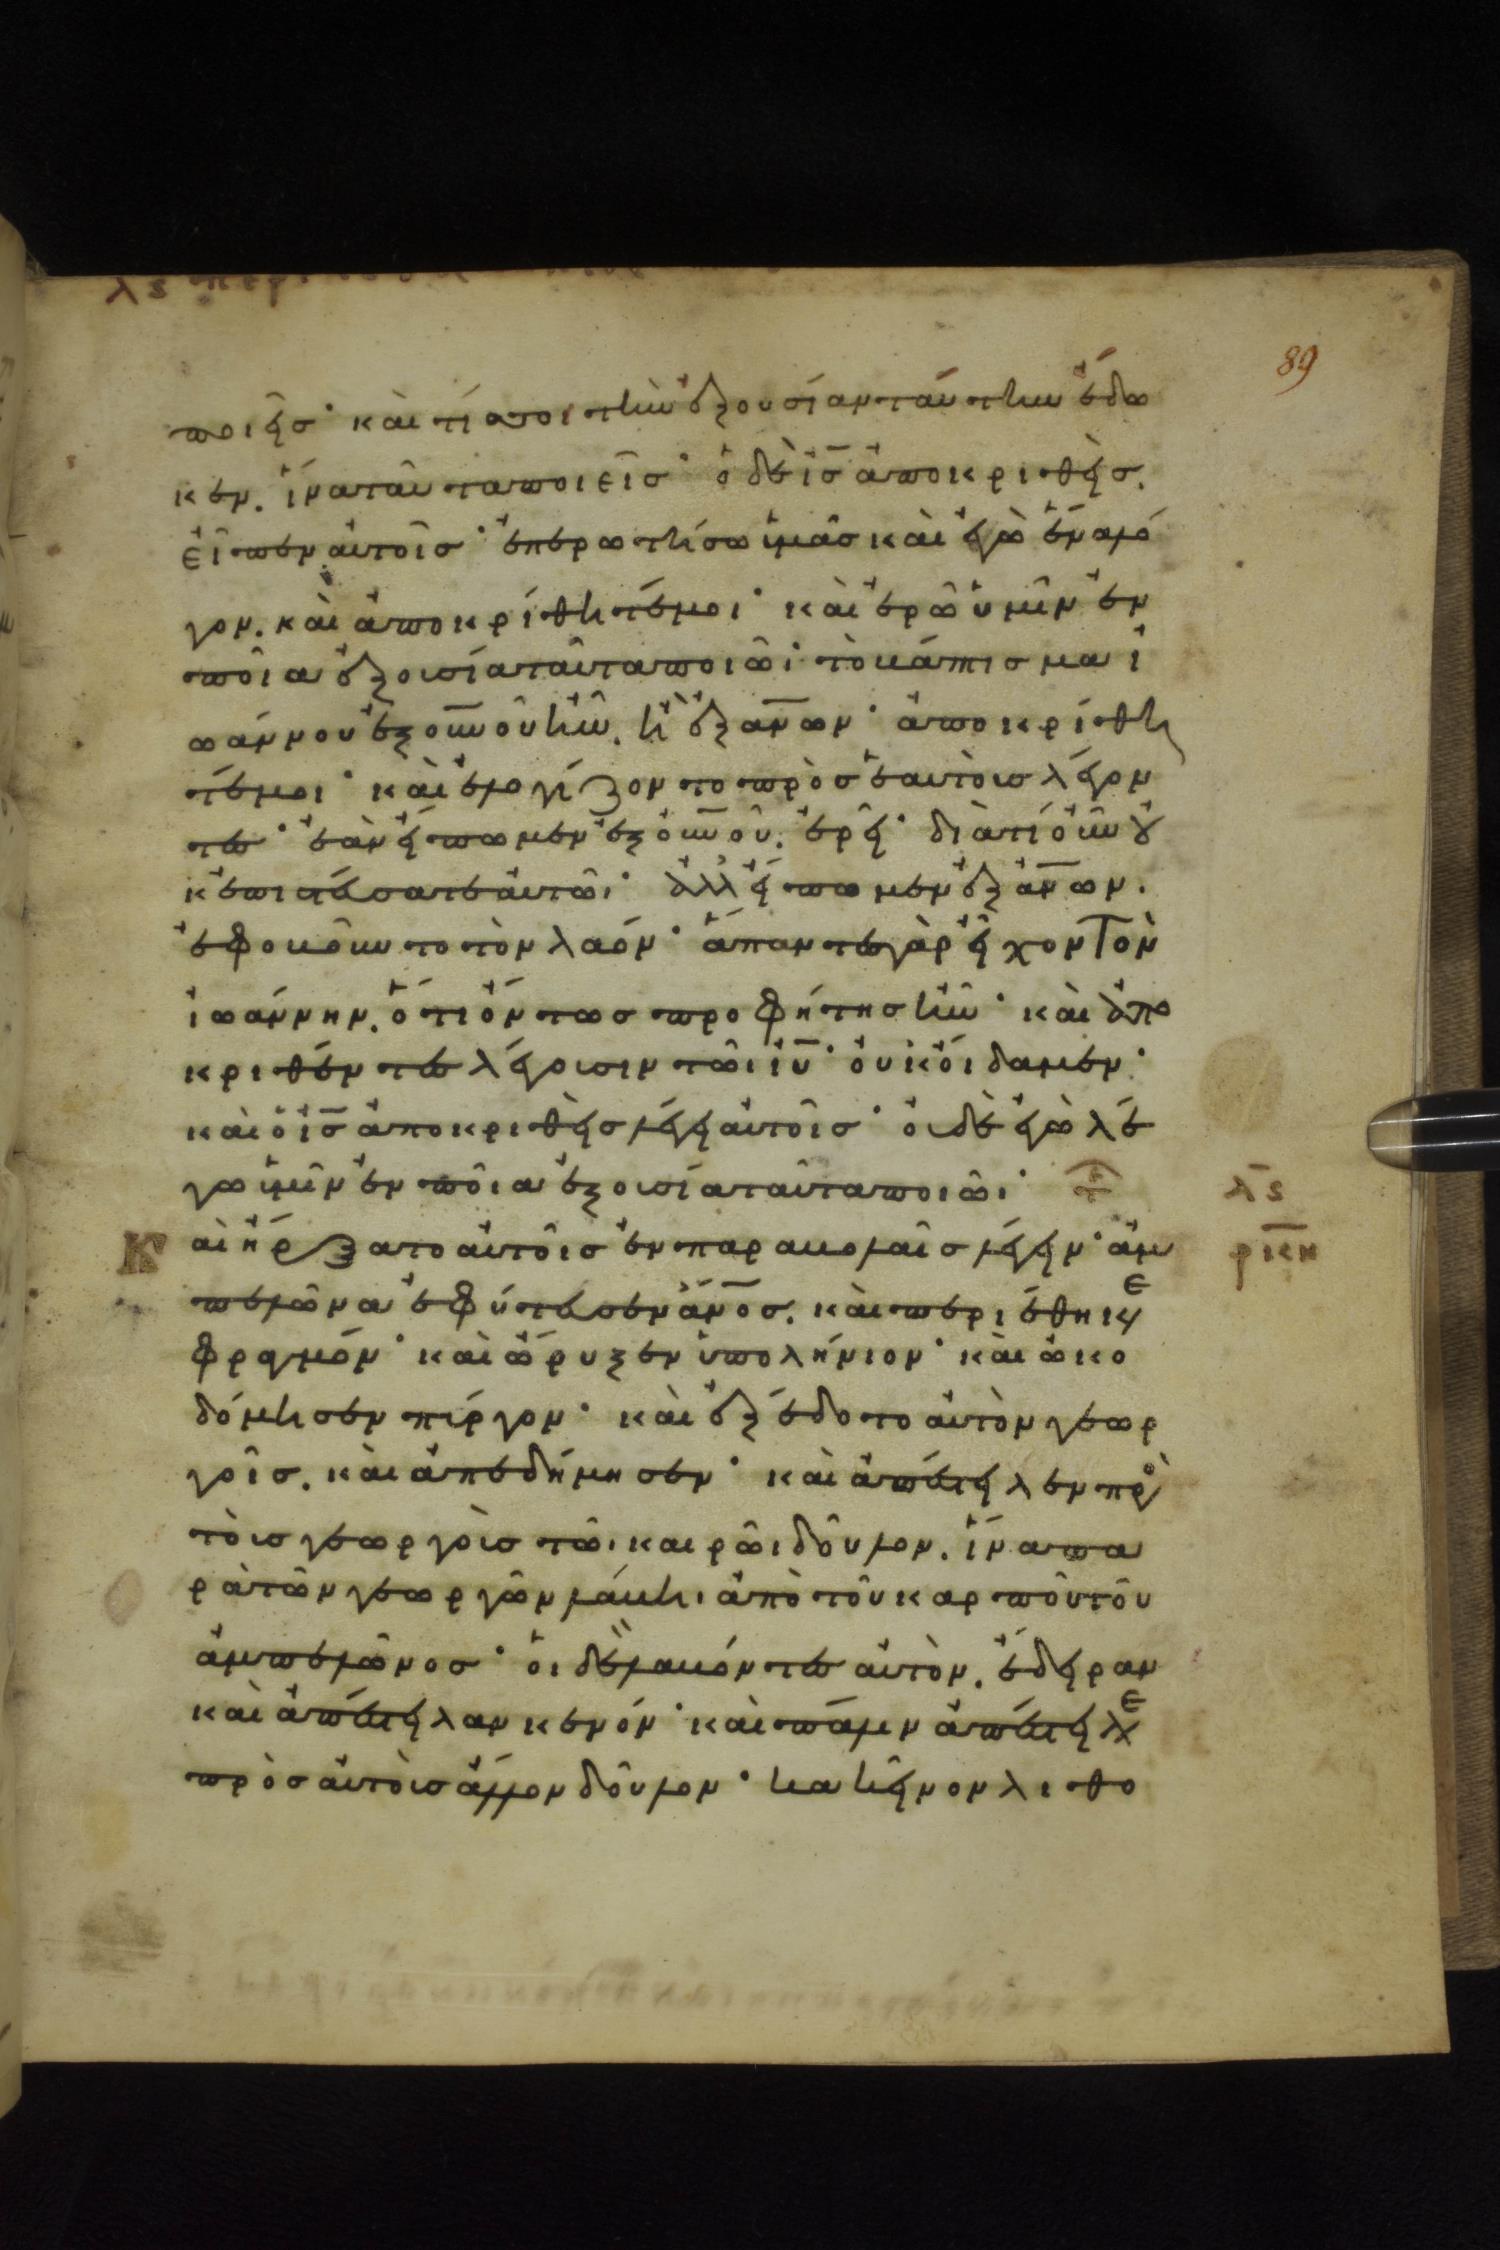 λς περι
89
ποιεῖς· καὶ τίς σοι τὴν ἐξουσίαν ταύτην ἔδω
κεν. ἵνα ταῦτα ποιεῖς· ὁ δὲ ἰ̅ς̅ ἀποκριθεὶς.
εἶπεν αὐτοῖς· ἐπερωτήσω ὑμᾶς καὶ ἐγὼ ἕνα λό
γον. καὶ ἀποκρίθητέ μοι· καὶ ἐρῶ ὑμῖν ἐν
ποία ἐξουσία ταῦτα ποιῶ· τὸ βάπτισμα ἰ
ωάννου ἐξ ο̅υ̅ν̅ο̅ῦ ἦν. ἢ ἐξ α̅ν̅ων· ἀποκρίθη
τέ μοι· καὶ ἐλογίζοντο πρὸς ἑαυτοὺς λέγον
τες· ἐὰν εἴπωμεν ἐξ ο̅υ̅ν̅ο̅ῦ. ἐρεῖ· διατί οὖν οὐ
κ ἐπιστεύσατε αὐτῶι· ἀλλ' εἴπωμεν ἐξ α̅ν̅ων.
ἐφοβοῦντο τὸν λαόν· ἅπαντες γὰρ εἶχον τὸν
ἰωάννην. ὅτι ὄντως προφήτης ἦν· καὶ ἀπο
κριθέντες λέγουσιν τῶι ἰ̅υ̅· οὐκ οἴδαμεν·
καὶ ὁ ἰ̅ς̅ ἀποκριθεὶς λέγει αὐτοῖς· οὐδὲ ἐγὼ λέ
γω ὑμῖν ἐν ποία ἐξουσία ταῦτα ποιῶι·
λς
ρκη
Καὶ ἤρξατο αὐτοῖς ἐν παραβολαῖς λέγειν· ἀμ
πελῶνα ἐφύτευσεν α̅ν̅ος. καὶ περιέθηκε
φραγμόν· καὶ ὤρυξεν ὑπολήνιον· καὶ ὠκο
δόμησεν πύργον· καὶ ἐξέδοτο αὐτὸν γεωρ
γοῖς. καὶ ἀπεδήμησεν· καὶ ἀπέστειλεν πρὸ
τοὺς γεωργοὺς τῶι καιρῶι δοῦλον. ἵνα πα
ρὰ τῶν γεωργῶν λάβηι ἀπὸ τοῦ καρποῦ τοῦ
ἀμπελῶνος· οἱ δὲ λαβόντες αὐτὸν. ἔδειραν
καὶ ἀπέστειλαν κενόν· καὶ πάλιν ἀπέστειλε
πρὸς αὐτοὺς ἄλλον δοῦλον· κακεῖνον λιθο